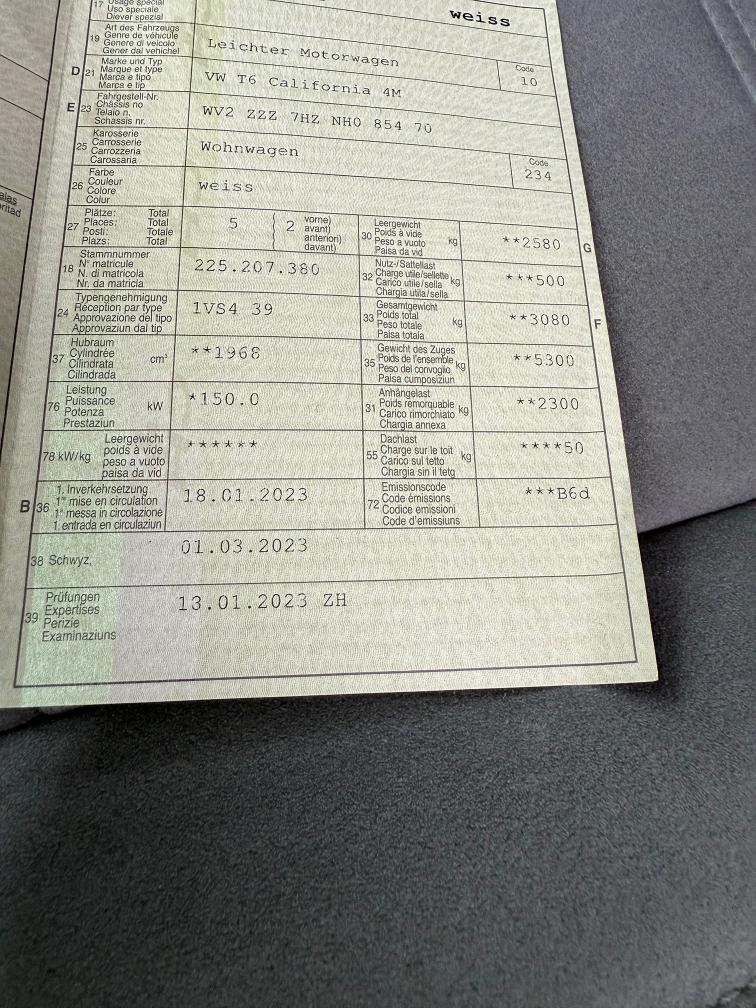 17 Usage spécial
Uso speciale
Diever spezial
weiss
19 Art des Fahrzeugs
Genre de véhicule
Genere di veicolo
Gener dal vehichel
Leichter Motorwagen
Code
10
D 21 Marke und Typ
Marque et type
Marca e tipo
Marca e tip
VW T6 California 4M
E 23 Fahrgestell-Nr.
Châssis no
Telaio n.
Schassis nr.
WV2 ZZZ 7HZ NH0 854 70
25 Karosserie
Carrosserie
Carrozzeria
Carossaria
Wohnwagen
Code
234
26 Farbe
Couleur
Colore
Colur
weiss
27 Plätze: Total
Places: Total
Posti: Totale
Plazs: Total
5 2 vorne)
avant)
anteriori)
davant)
30 Leergewicht
Poids à vide
Peso a vuoto
Paisa da vid
kg
**2580
G
18 Stammnummer
N° matricule
N. di matricola
Nr. da matricla
225.207.380
32 Nutz-/Sattellast
Charge utile/sellette
Carico utile/sella
Chargia utila/sella
kg
***500
24 Typengenehmigung
Réception par type
Approvazione del tipo
Approvaziun dal tip
1VS4 39
33 Gesamtgewicht
Poids total
Peso totale
Paisa totala
kg
**3080
F
37 Hubraum
Cylindrée
Cilindrata
Cilindrada
cm³
**1968
35 Gewicht des Zuges
Poids de l'ensemble
Peso del convoglio
Paisa cumposiziun
kg
**5300
76 Leistung
Puissance
Potenza
Prestaziun
kW
*150.0
31 Anhängelast
Poids remorquable
Carico rimorchiato
Chargia annexa
kg
**2300
78 kW/kg Leergewicht
poids à vide
peso a vuoto
paisa da vid
******
55 Dachlast
Charge sur le toit
Carico sul tetto
Chargia sin il tetg
kg
****50
B 36 1. Inverkehrsetzung
1re mise en circulation
1a messa in circolazione
1. entrada en circulaziun
18.01.2023
72 Emissionscode
Code émissions
Codice emissioni
Code d'emissiuns
***B6d
38 Schwyz,
01.03.2023
39 Prüfungen
Expertises
Perizie
Examinaziuns
13.01.2023 ZH